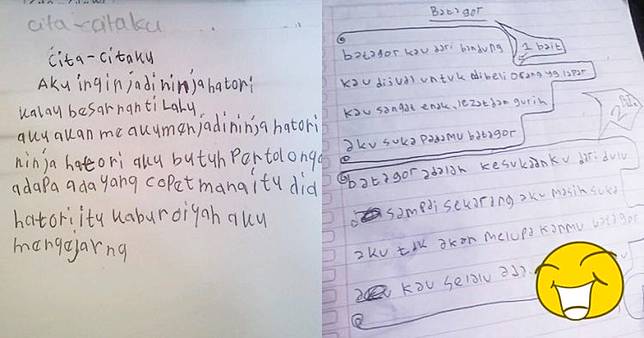 cita-citaku
Cita-Citaku
Aku ingin jadi ninja hatori
kalau besar nanti Lalu
aku akan me akumenjadi ninja hatori
ninja hatori aku butuh Pertolong
adapa ada yang copet mana itu did
hatori itu kabur diyah aku
mengejarng
Batagor
batagor kau dari bindung
1 bait
kau dijual untuk dibeli orang yg lapar
kau sangat enak, lezat dan gurih
aku suka padamu batagor
2
batagor adalah kesukaanku dari dulu
sampai sekarang aku masih suka
aku tak akan melupakanmu batagor
kau selalu ada